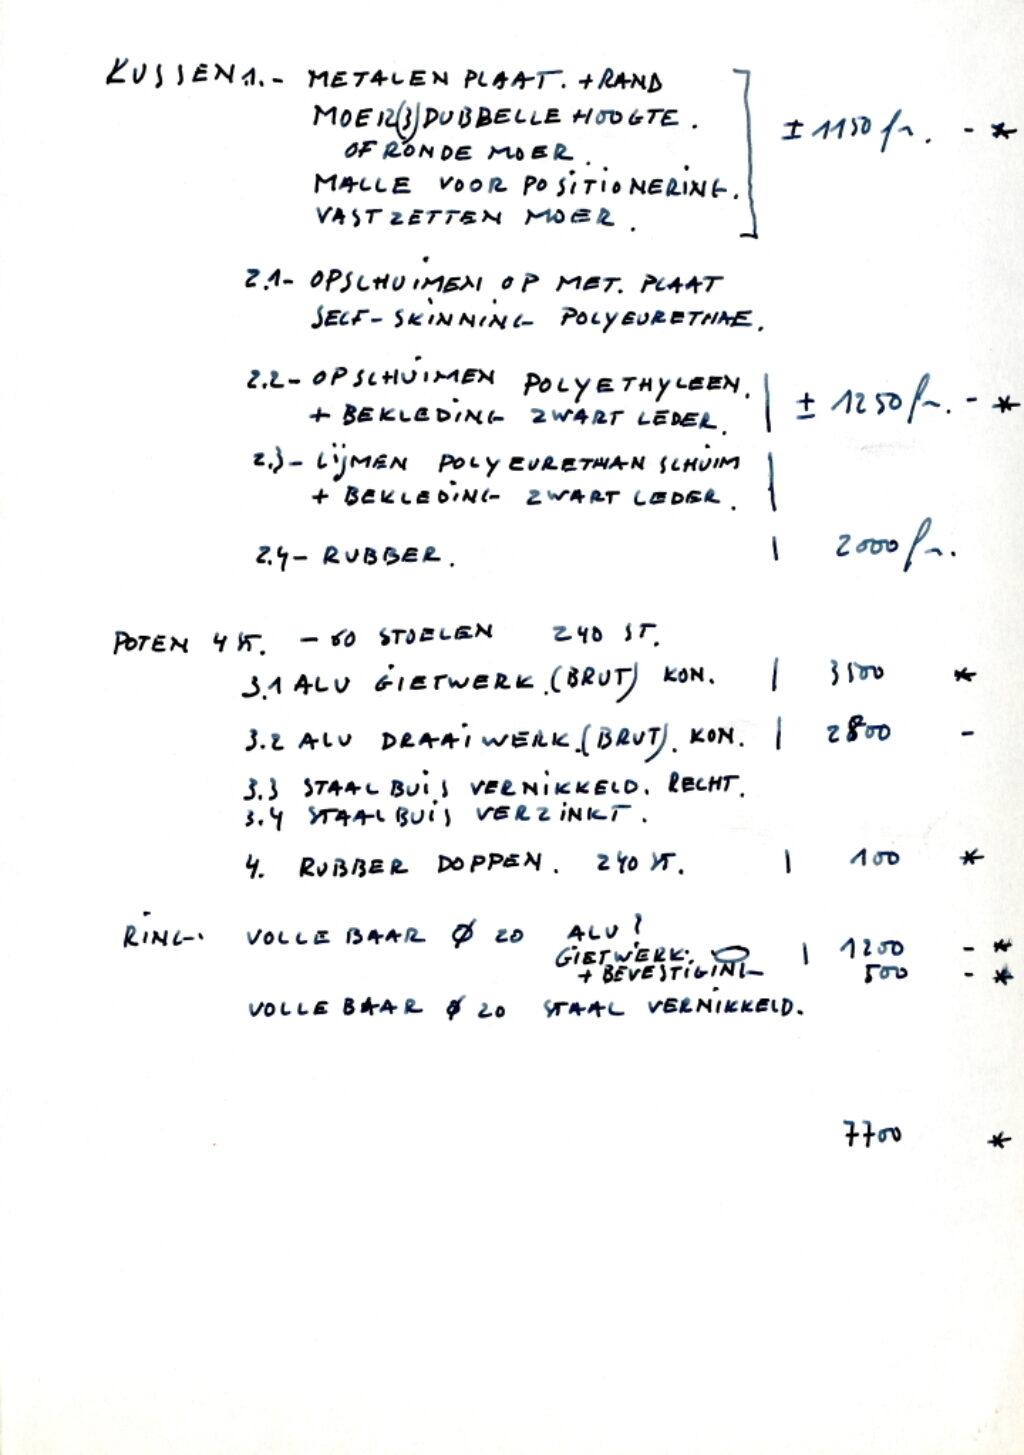 KUSSEN 1.- METALEN PLAAT. + RAND
MOER(3) DUBBELLE HOOGTE.
OF RONDE MOER. ± 1150 fr. - *
MALLE VOOR POSITIONERING.
VASTZETTEN MOER.
2.1- OPSCHUIMEN OP MET. PLAAT
SELF-SKINNING POLYEURETHAE.
2.2- OPSCHUIMEN POLYETHYLEEN.
+ BEKLEDING ZWART LEDER. | ± 1250 fr. - *
2.3- LIJMEN POLYEURETHAN SCHUIM
+ BEKLEDING ZWART LEDER. |
2.4- RUBBER. | 2000 fr.
POTEN 4 ST. - 60 STOELEN 240 ST.
3.1 ALU GIETWERK.(BRUT) KON. | 3500 *
3.2 ALU DRAAIWERK.(BRUT). KON. | 2800 -
3.3 STAALBUIS VERNIKKELD. RECHT.
3.4 STAALBUIS VERZINKT.
4. RUBBER DOPPEN. 240 ST. | 100 *
RING. VOLLE BAAR Ø 20 ALU?
GIETWERK. | 1200 - *
+ BEVESTIGING 500 - *
VOLLE BAAR Ø 20 STAAL VERNIKKELD.
7700 *